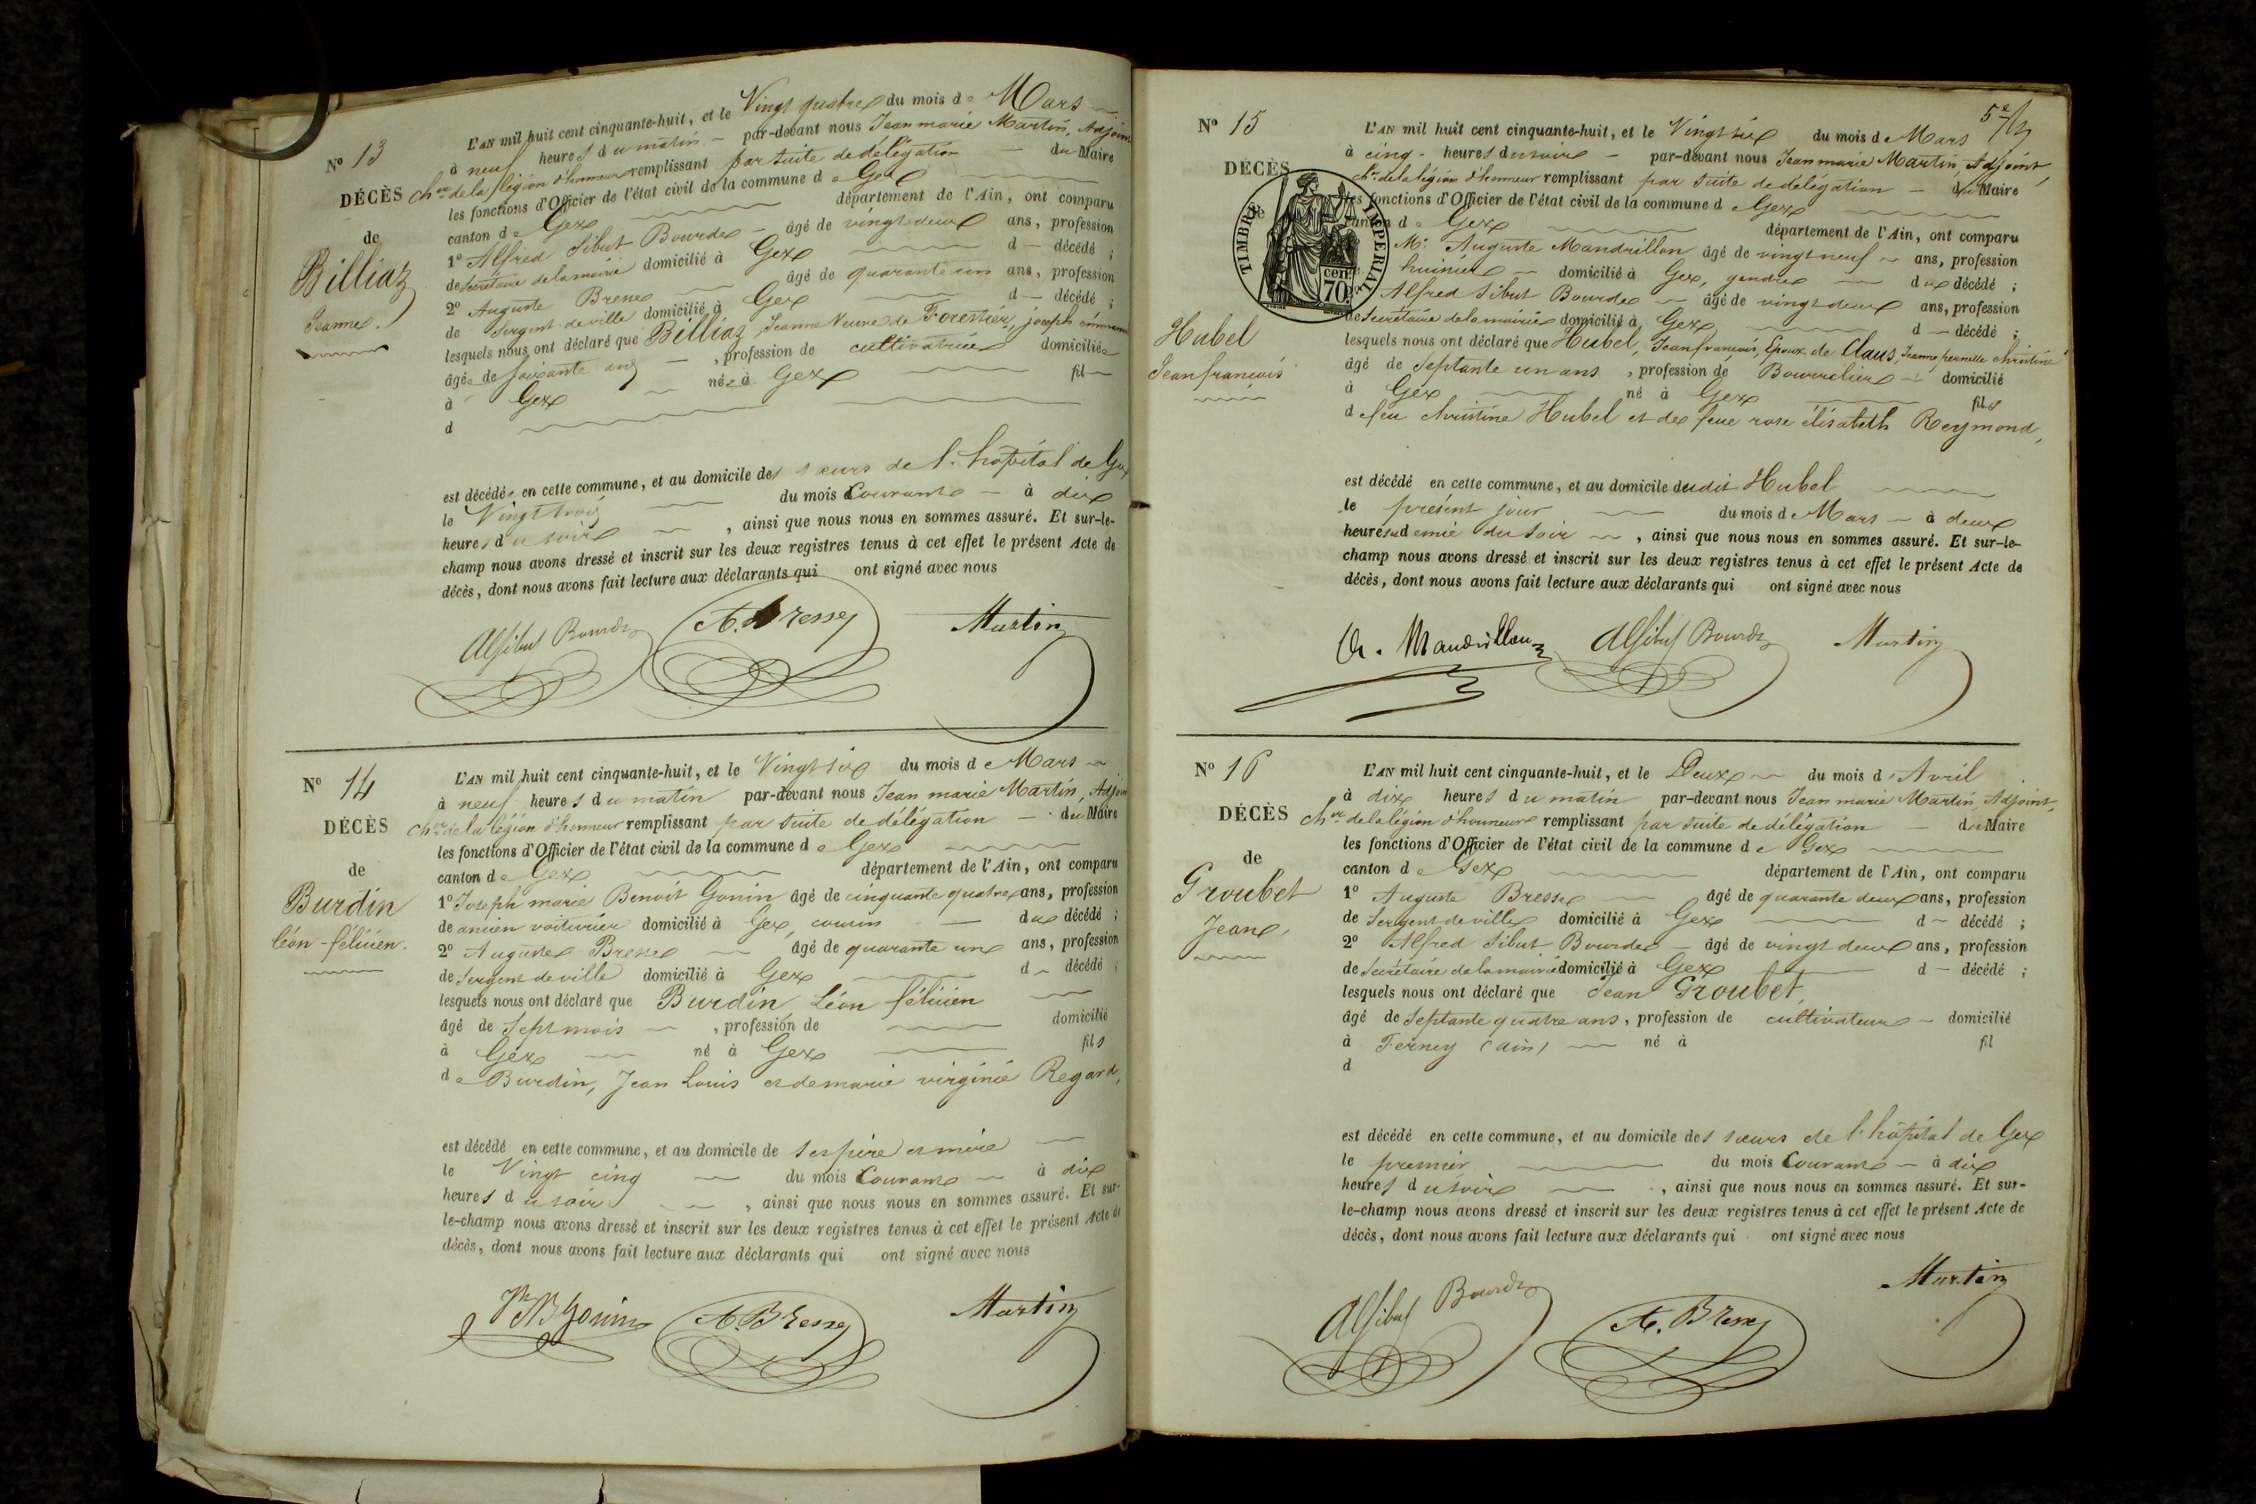 N° 13
DÉCÈS
de
Billiaz
Jeanne.
L'AN mil huit cent cinquante-huit, et le Vingt quatre du mois de Mars
à neuf heures du matin par-devant nous Jean marie Martin, Adjoint
Ch.er de la légion d'honneur remplissant par suite de délégation du Maire
les fonctions d'Officier de l'état civil de la commune de Gex
canton de Gex département de l'Ain, ont comparu
1° Alfred Sibut Bourde âgé de vingt deux ans, profession
de Secrétaire de la mairie domicilié à Gex d décédé ;
2° Auguste Bresse âgé de quarante un ans, profession
de Sergent de ville domicilié à Gex d décédé ;
lesquels nous ont déclaré que Billiaz Jeanne Veuve de Forestier, joseph
âgée de soixante ans, profession de cultivatrice domiciliée
à Gex née à Gex fil
d
est décédée en cette commune, et au domicile des sœurs de l'hôpital de Gex
le Vingt trois du mois Courant à dix
heures du soir, ainsi que nous nous en sommes assuré. Et sur-le-
champ nous avons dressé et inscrit sur les deux registres tenus à cet effet le présent Acte de
décès, dont nous avons fait lecture aux déclarants qui ont signé avec nous
Alf Sibut Bourde A. Bresse Martin
N° 14
DÉCÈS
de
Burdin
léon-félicien.
L'AN mil huit cent cinquante-huit, et le Vingt six du mois de Mars
à neuf heures du matin par-devant nous Jean marie Martin, Adjoint
Ch.er de la légion d'honneur remplissant par suite de délégation du Maire
les fonctions d'Officier de l'état civil de la commune de Gex
canton de Gex département de l'Ain, ont comparu
1° Joseph marie Benoit Gonin âgé de cinquante quatre ans, profession
de ancien voiturier domicilié à Gex, cousin du décédé ;
2° Auguste Bresse âgé de quarante un ans, profession
de Sergent de ville domicilié à Gex d décédé ;
lesquels nous ont déclaré que Burdin, Léon félicien
âgé de Sept mois, profession de domicilié
à Gex né à Gex fils
de Burdin, Jean Louis et de marie virginie Regard,
est décédé en cette commune, et au domicile de ses père et mère
le Vingt cinq du mois Courant à dix
heures du soir, ainsi que nous nous en sommes assuré. Et sur-
le-champ nous avons dressé et inscrit sur les deux registres tenus à cet effet le présent Acte de
décès, dont nous avons fait lecture aux déclarants qui ont signé avec nous
JMB Gonin A. Bresse Martin
5e
N° 15
DÉCÈS
de
TIMBRE IMPERIAL
70 cen.
Hubel
Jean françois
L'AN mil huit cent cinquante-huit, et le Vingt six du mois de Mars
à cinq heures du soir par-devant nous Jean marie Martin, Adjoint,
Ch.er de la légion d'honneur remplissant par suite de délégation du Maire
les fonctions d'Officier de l'état civil de la commune de Gex
canton de Gex département de l'Ain, ont comparu
M.r Auguste Mandrillon âgé de vingt neuf ans, profession
huissier domicilié à Gex, gendre du décédé ;
Alfred Sibut Bourde âgé de vingt deux ans, profession
de Secrétaire de la mairie domicilié à Gex d décédé ;
lesquels nous ont déclaré que Hubel, Jean françois, Epoux de Claus, Jeanne pernette christine
âgé de Septante un ans, profession de Bourrelier domicilié
à Gex né à Gex fils
de feu christine Hubel et de feue rose élisabeth Reymond,
est décédé en cette commune, et au domicile dudit Hubel
le présent jour du mois de Mars à deux
heures et demie du soir, ainsi que nous nous en sommes assuré. Et sur-le-
champ nous avons dressé et inscrit sur les deux registres tenus à cet effet le présent Acte de
décès, dont nous avons fait lecture aux déclarants qui ont signé avec nous
A. Mandrillon Alf Sibut Bourde Martin
N° 16
DÉCÈS
de
Groubet
Jean,
L'AN mil huit cent cinquante-huit, et le Deux du mois d'Avril
à dix heures du matin par-devant nous Jean marie Martin, Adjoint,
Ch.er de la légion d'honneur remplissant par suite de délégation du Maire
les fonctions d'Officier de l'état civil de la commune de Gex
canton de Gex département de l'Ain, ont comparu
1° Auguste Bresse âgé de quarante deux ans, profession
de Sergent de ville domicilié à Gex d décédé ;
2° Alfred Sibut Bourde âgé de vingt deux ans, profession
de Secrétaire de la mairie domicilié à Gex d décédé ;
lesquels nous ont déclaré que Jean Groubet,
âgé de Septante quatre ans, profession de cultivateur domicilié
à Ferney (ain) né à fil
d
est décédé en cette commune, et au domicile des sœurs de l'hôpital de Gex
le premier du mois Courant à dix
heures du soir, ainsi que nous nous en sommes assuré. Et sur-
le-champ nous avons dressé et inscrit sur les deux registres tenus à cet effet le présent Acte de
décès, dont nous avons fait lecture aux déclarants qui ont signé avec nous
Alf Sibut Bourde A. Bresse Martin